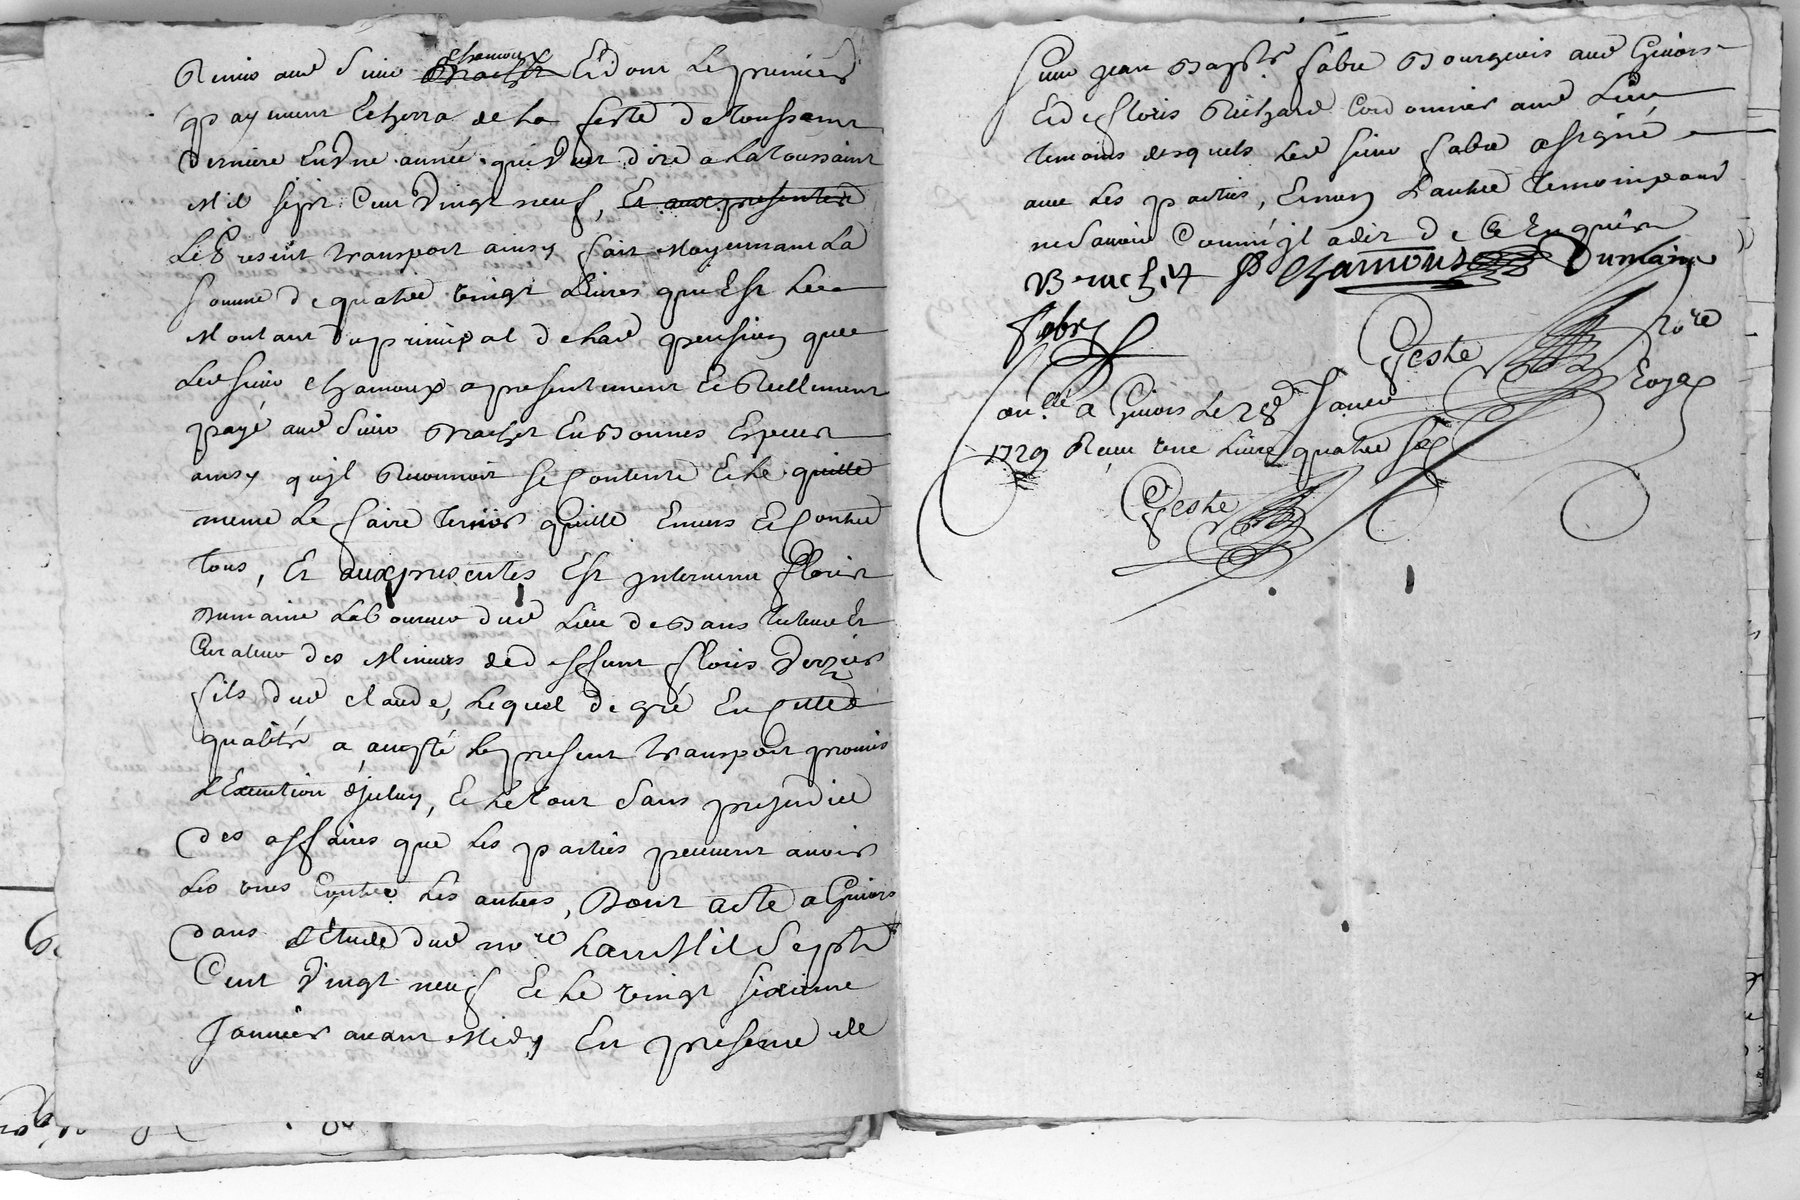 Remis aud Sieur chamoux Brachet Et dont Le premier
payement Echerra de La feste de toussaint
derniere En Une année qui Veut dire a La toussaint
Mil sept Cent Vingt neuf, Et aux presentes
Le Present transport ainsy fait Moyennant La
somme de quatre vingt Livres qui Est Le
Montant du principal de Lad pension que
Led sieur chamoux a presentement Et Reellement
payé aud Sieur Brachet En Bonnes Especes
ainsy quil Reconnoit se Contente Et Le quitte
meme Le faire tenir quitte Envers Et Contre
tous, Et aux presentes Est intervenu floris
Dumaine Laboureur dud Lieu de Bans tuteur Et
Curateur des Mineurs de deffunt floris Verzier
fils dud claude, Lequel de gré En cette
qualité a accepté Le present transport promis
Et Le tout Sans prejudice
des affaires que Les parties peuvent avoir
Les unes Contre Les autres, Dont acte a Givors
dans L'Etude dud no.re Lan Mil Sept
Cent Vingt neuf Et Le vingt sixieme
Janvier avant Midy En presence de
sieur Jean Bapt.e fabre Bourgeois aud Givors
Et de floris Richard Cordonnier aud Lieu
temoins desquels Led sieur fabre a signé
avec Les parties, Et non L'autre temoin pour
ne Savoir Comme il a dit de Ce Enquis
Brachet Chamoux Dumaine
fabre
Geste No.re
Royal
con.lé a Givors Le 28 Janv
1729 Reçu une Livre quatre sols
Geste